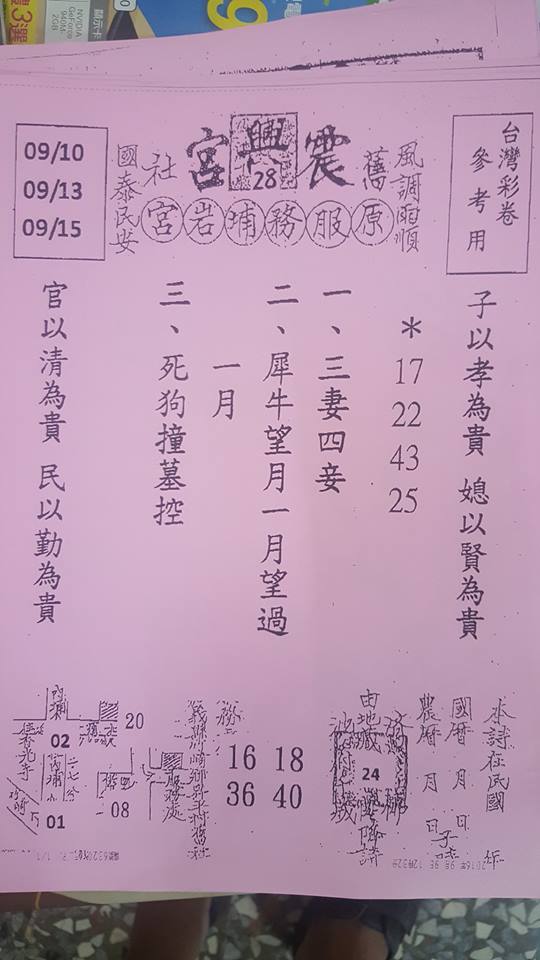 台灣彩卷
參考用
風調雨順
舊
震興宮
28
社
國泰民安
原服務埔岩宮
09/10
09/13
09/15
子以孝為貴 媳以賢為貴
*
17
22
43
25
一、三妻四妾
二、犀牛望月一月望過
一月
三、死狗撞墓控
官以清為貴 民以勤為貴
本詩在民國 年
國曆 月 日
農曆 月 日
由地藏
24
16 18
36 40
20
02
08
01
NVIDIA
GeForce
940M-
2GB